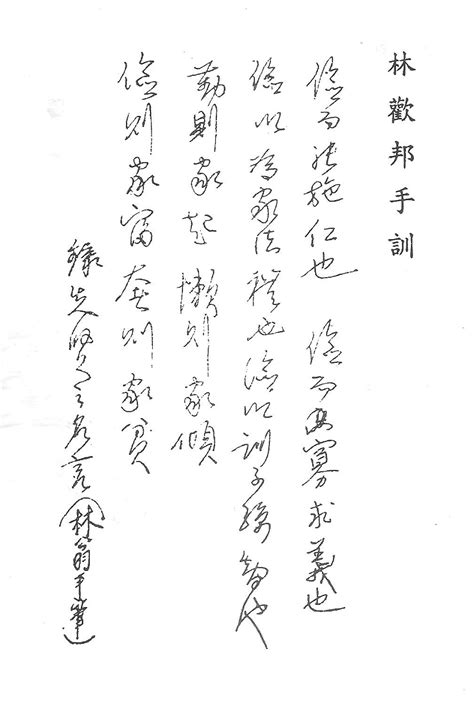 林歡邦手訓
儉而能施仁也 儉而寡求義也
儉以為家法禮也儉以訓子孫智也
勤則家起 懶則家傾
儉則家富 奢則家貧
錄先賢之名言(林翁手筆)